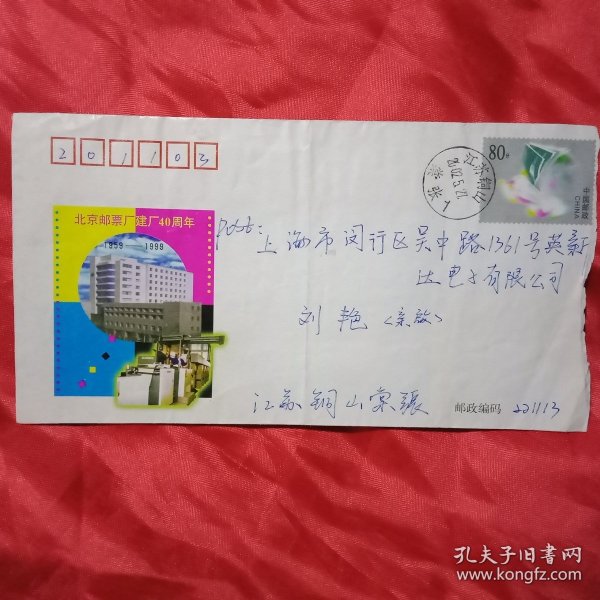 201103
80分
中国邮政
CHINA
江苏铜山
2002.5.21
棠张 1
北京邮票厂建厂40周年
1959-1999
Post:
上海市闵行区吴中路1361号英新
达电子有限公司
刘艳（亲启）
江苏铜山棠张
邮政编码 221113
孔夫子旧书网
www.kongfz.com